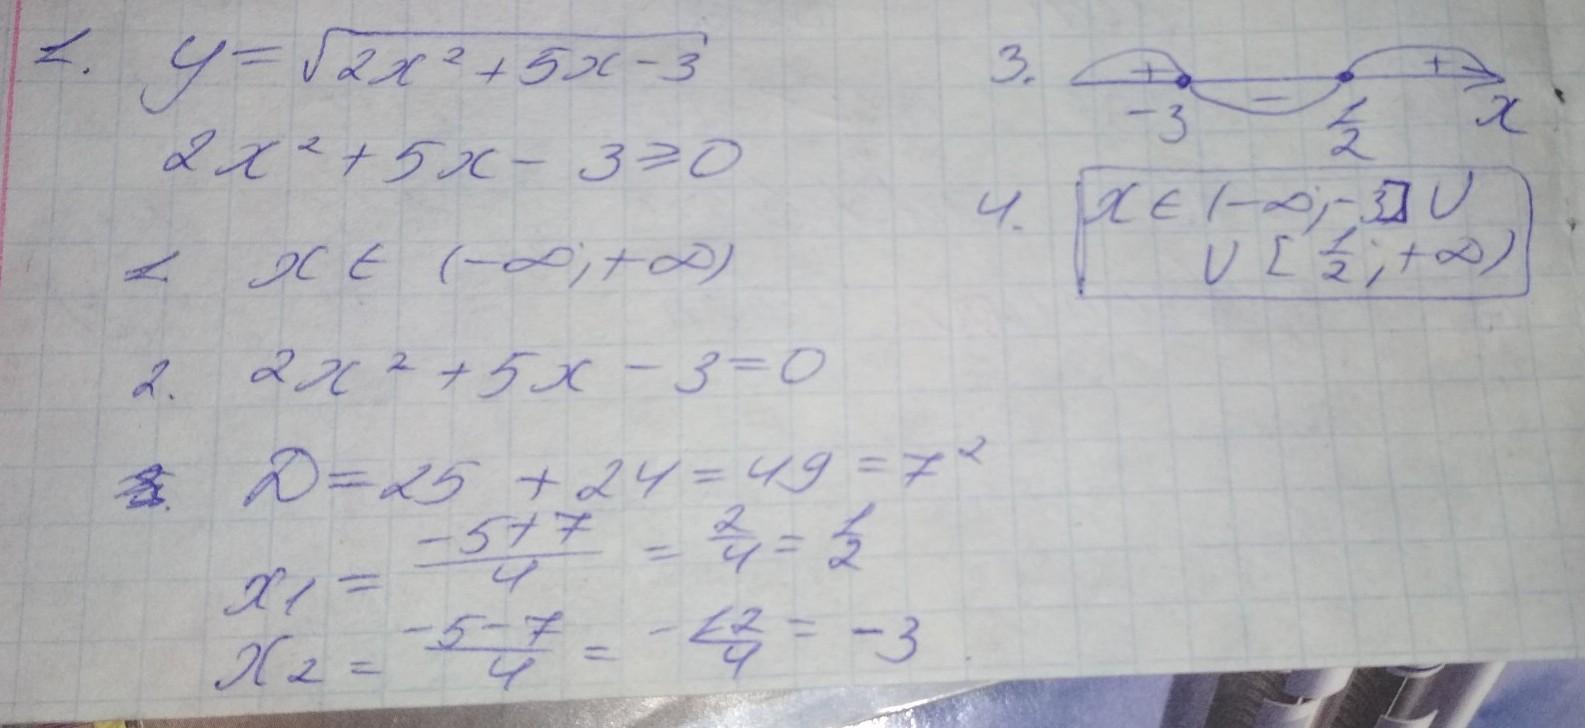 1. y = √(2x² + 5x - 3)
2x² + 5x - 3 ⩾ 0
1 x ∈ (-∞; +∞)
2. 2x² + 5x - 3 = 0
D = 25 + 24 = 49 = 7²
x1 = (-5+7)/4 = 2/4 = 1/2
x2 = (-5-7)/4 = -12/4 = -3
3. + - +
-3 1/2 x
4. x ∈ (-∞; -3] ∪
∪ [1/2; +∞)